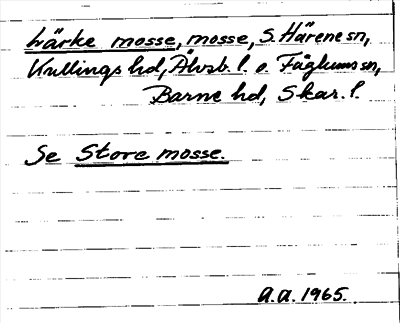 Lärke mosse, mosse, S. Härene sn,
Kullings hd, Älvsb. l. o. Fåglums sn,
Barne hd, Skar. l.
Se Store mosse.
a.a. 1965.